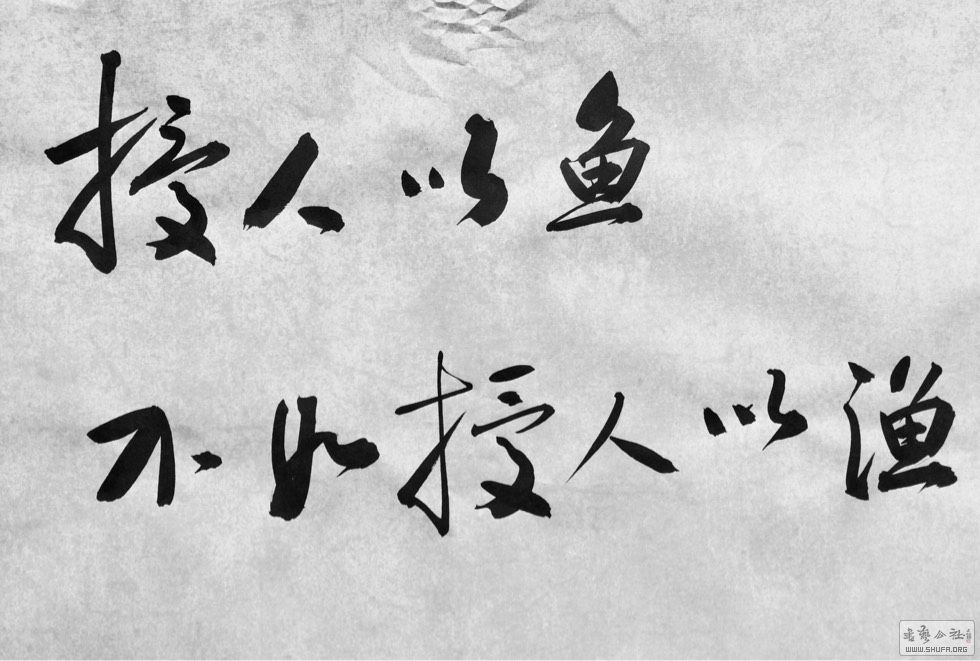 授人以鱼
不如授人以渔
书艺公社
WWW.SHUFA.ORG